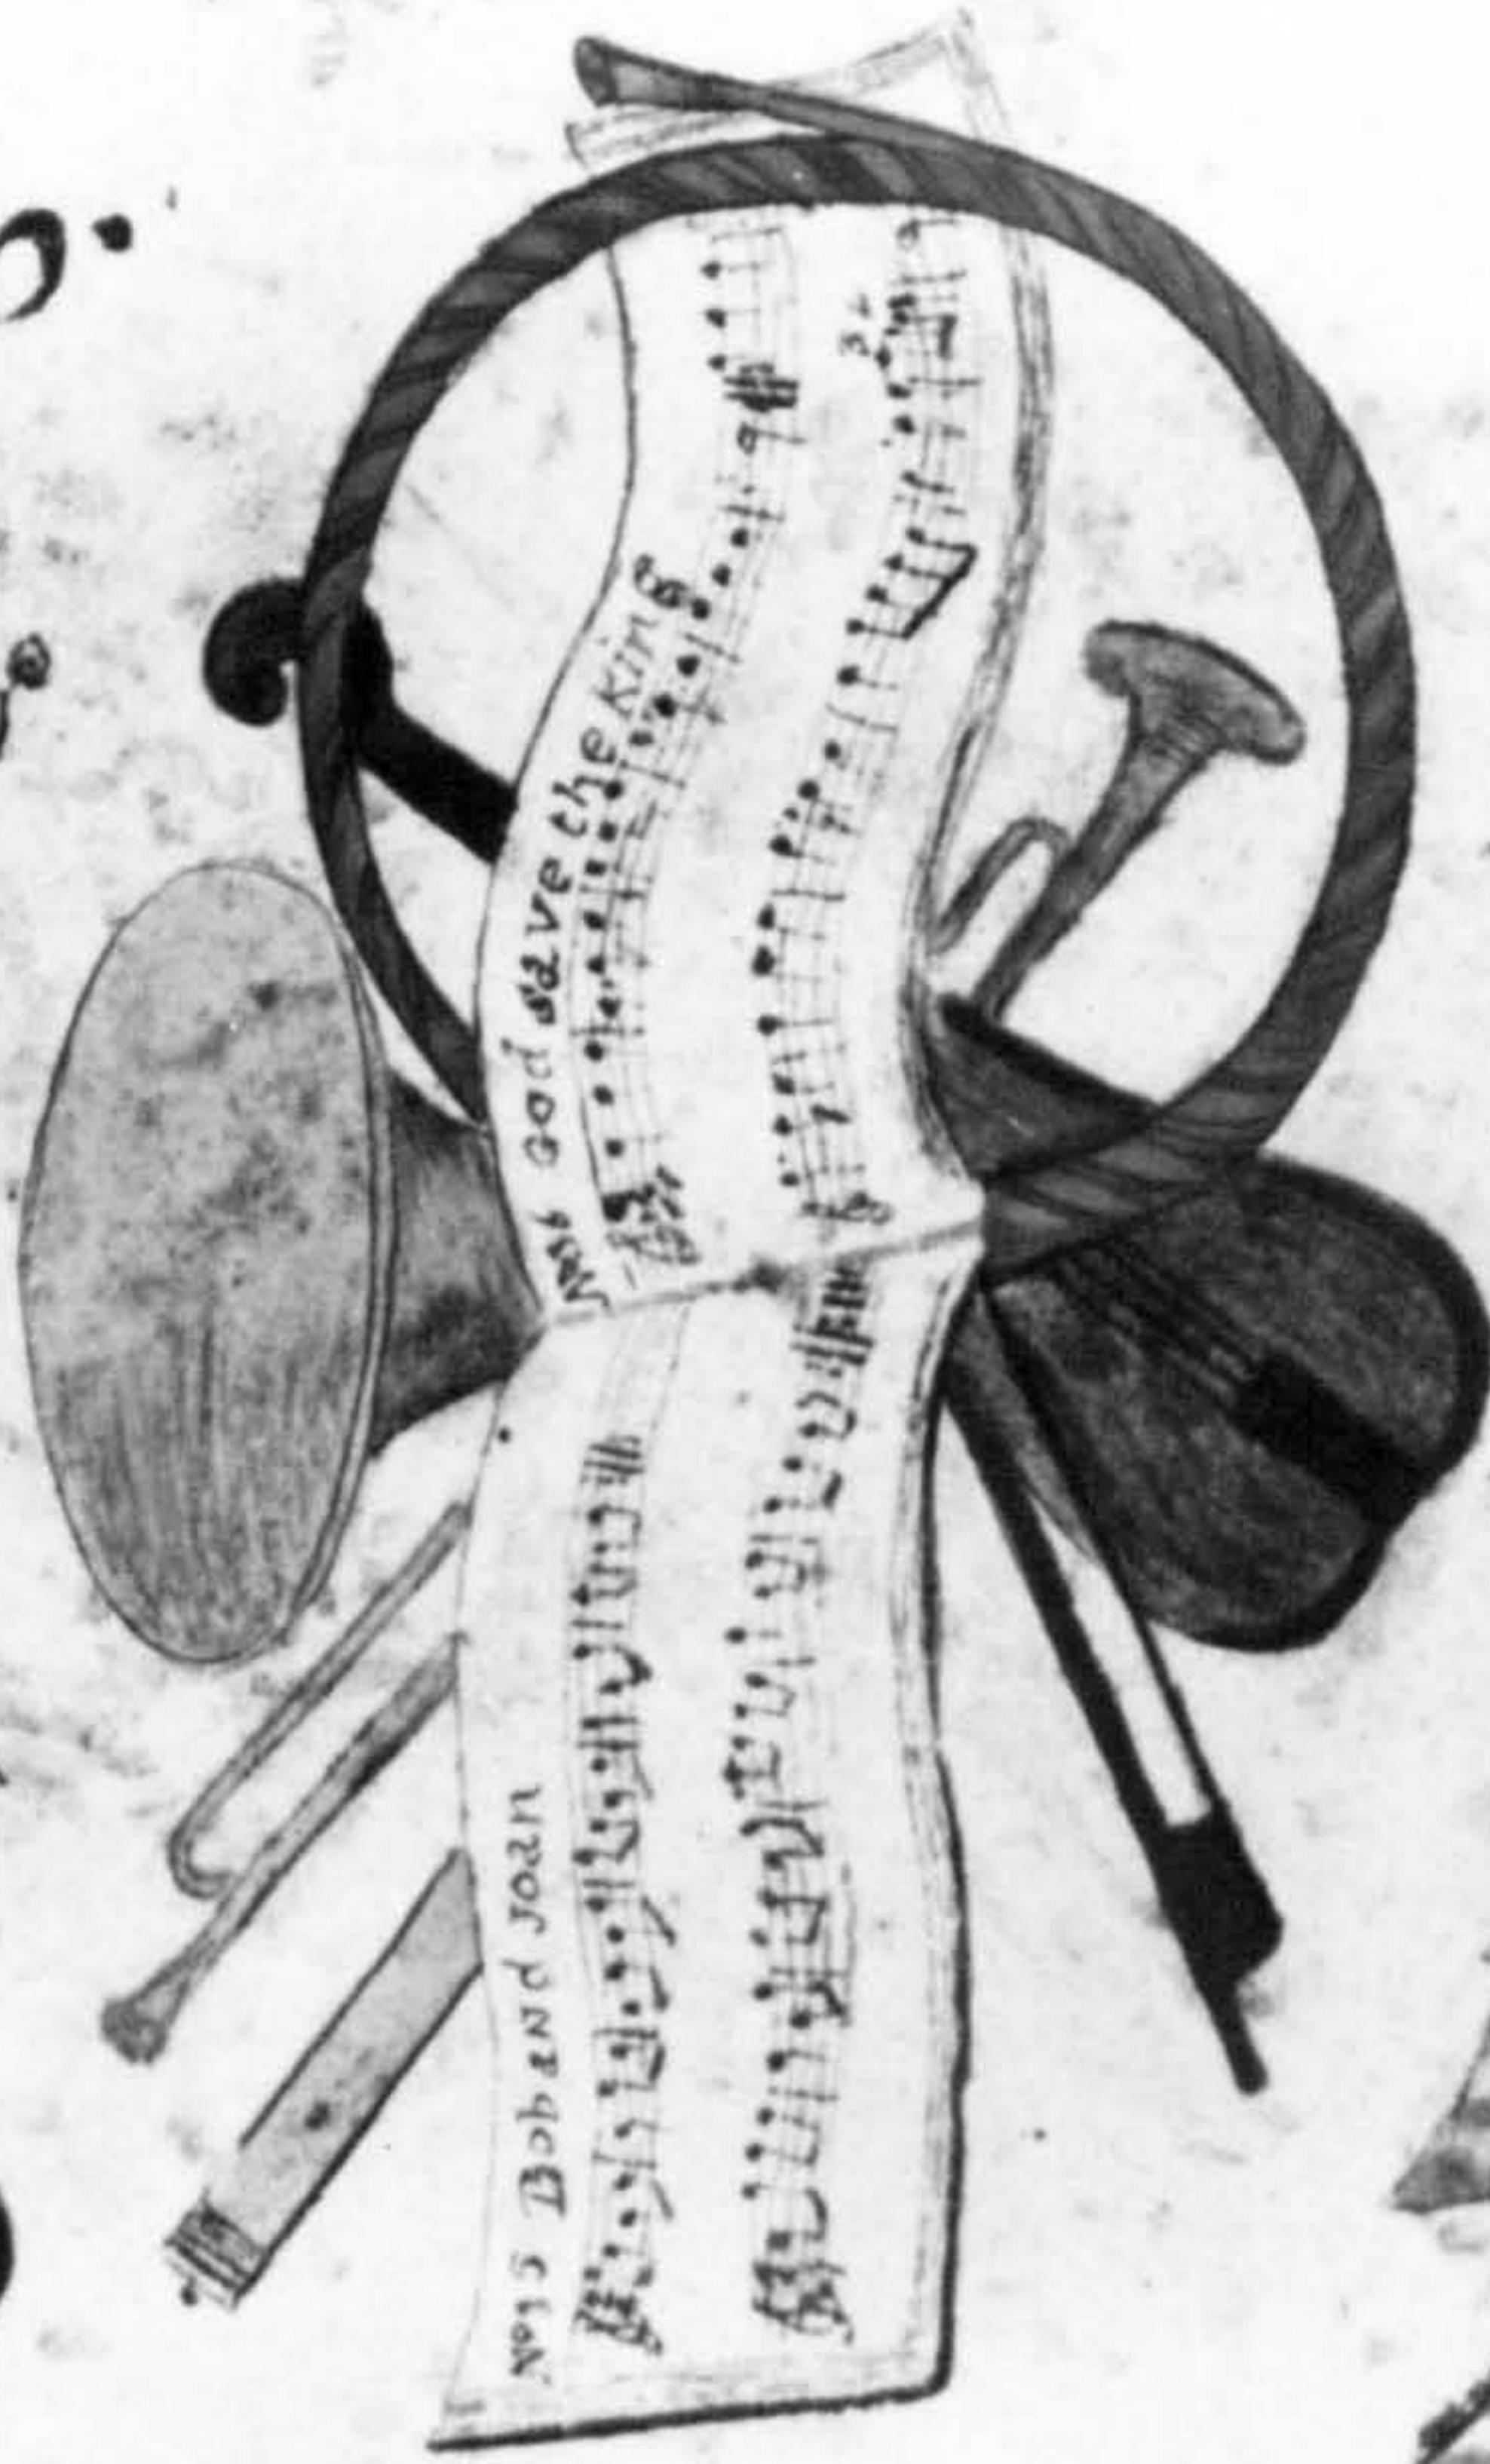 No55 Bob and Joan
God save the King